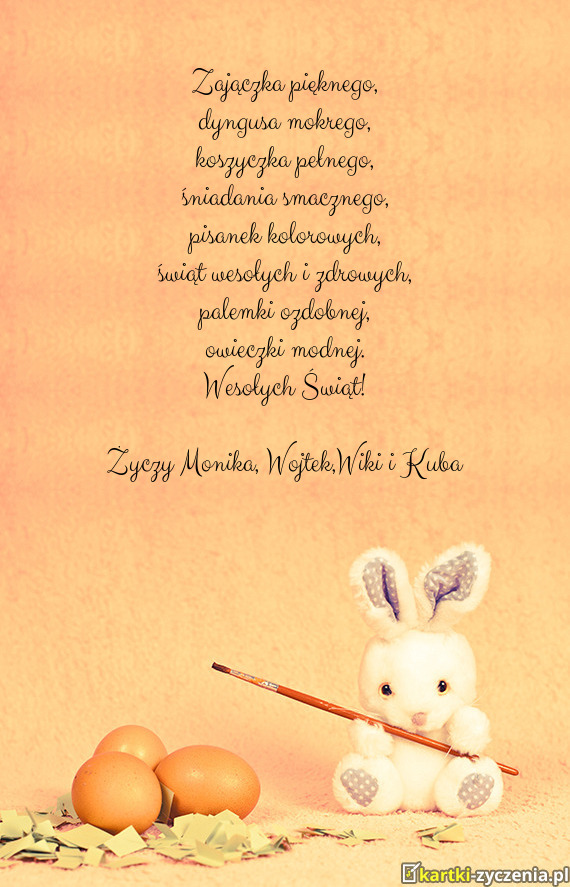 Zajączka pięknego,
dyngusa mokrego,
koszyczka pełnego,
śniadania smacznego,
pisanek kolorowych,
świąt wesołych i zdrowych,
palemki ozdobnej,
owieczki modnej.
Wesołych Świąt!
Życzy Monika, Wojtek,Wiki i Kuba
kartki-zyczenia.pl